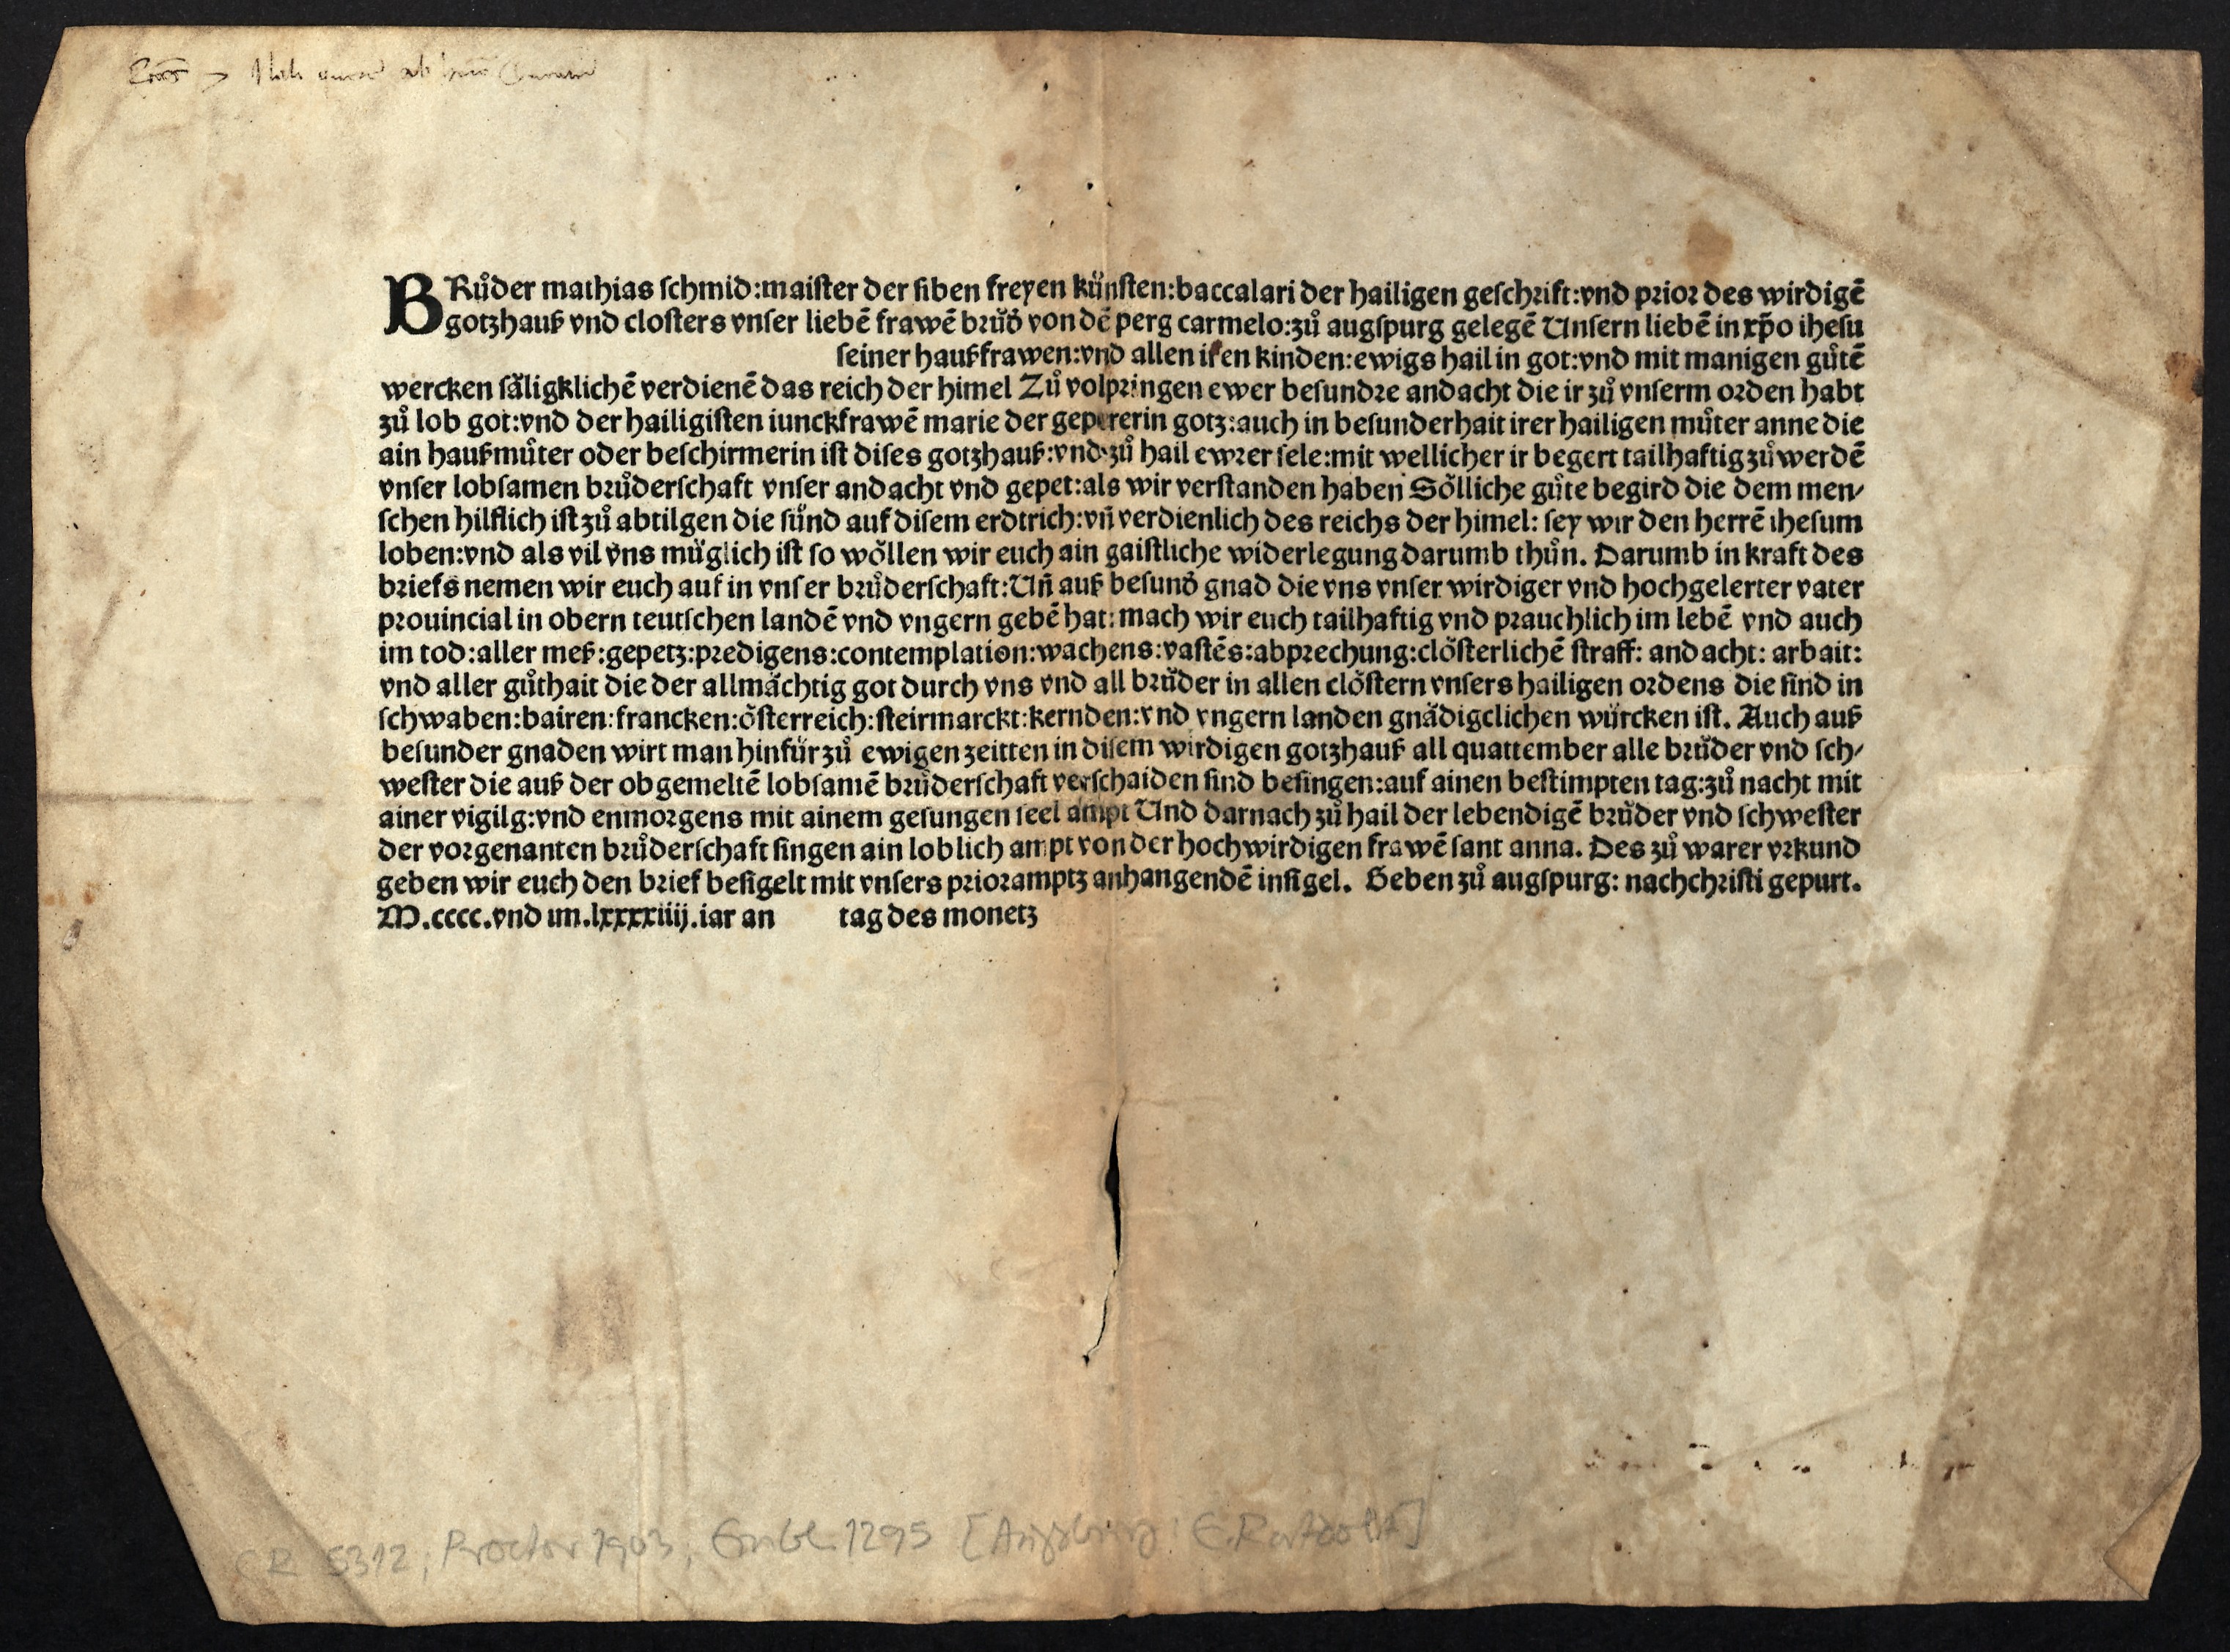 BRůder mathias ſchmid:maiſter der ſiben freyen künſten:baccalari der hailigen geſchrift:vnd prior des wirdigē
gotzhauß vnd cloſters vnſer liebē frawē brůď von dē perg carmelo:zů augſpurg gelegē Unſern liebē in xp̄o iheſu
ſeiner haußfrawen:vnd allen iren kinden:ewigs hail in got:vnd mit manigen gůtē
wercken ſäligklichē verdienē das reich der himel Zů volpringen ewer beſundre andacht die ir zů vnſerm orden habt
zů lob got:vnd der hailigiſten iunckfrawē marie der gepererin gotz:auch in beſunderhait irer hailigen můter anne die
ain haußmůter oder beſchirmerin iſt diſes gotzhauß:vnd zů hail ewrer ſele:mit wellicher ir begert tailhaftig zů werdē
vnſer lobſamen brůderſchaft vnſer andacht vnd gepet:als wir verſtanden haben Sölliche gůte begird die dem men/
ſchen hilflich iſt zů abtilgen die ſünd auf diſem erdtrich:vn̄ verdienlich des reichs der himel: ſey wir den herrē iheſum
loben:vnd als vil vns müglich iſt ſo wöllen wir euch ain gaiſtliche widerlegung darumb thůn. Darumb in kraft des
briefs nemen wir euch auf in vnſer brůderſchaft:Un̄ auß beſunď gnad die vns vnſer wirdiger vnd hochgelerter vater
prouincial in obern teutſchen landē vnd vngern gebē hat: mach wir euch tailhaftig vnd prauchlich im lebē vnd auch
im tod:aller meß:gepetz:predigens:contemplation:wachens:vaſtēs:abprechung:clöſterlichē ſtraff: andacht: arbait:
vnd aller gůthait die der allmächtig got durch vns vnd all brůder in allen clöſtern vnſers hailigen ordens die ſind in
ſchwaben:bairen:francken:öſterreich:ſteirmarckt:kernden:vnd vngern landen gnädigclichen würcken iſt. Auch auß
beſunder gnaden wirt man hinfür zů ewigen zeitten in diſem wirdigen gotzhauß all quattember alle brůder vnd ſch/
weſter die auß der obgemeltē lobſamē brůderſchaft verſchaiden ſind beſingen:auf ainen beſtimpten tag:zů nacht mit
ainer vigilg:vnd enmorgens mit ainem geſungen ſeel ampt Und darnach zů hail der lebendigē brůder vnd ſchweſter
der vorgenanten brůderſchaft ſingen ain loblich ampt von der hochwirdigen frawē ſant anna. Des zů warer vrkund
geben wir euch den brief beſigelt mit vnſers prioramptz anhangendē inſigel. Geben zů augſpurg: nach chriſti gepurt.
M.cccc.vnd im.lxxxxiiij.iar an tag des monetz
CR 5312, Proctor 1903, Einbl. 1295 [Augsburg: E. Ratdolt]